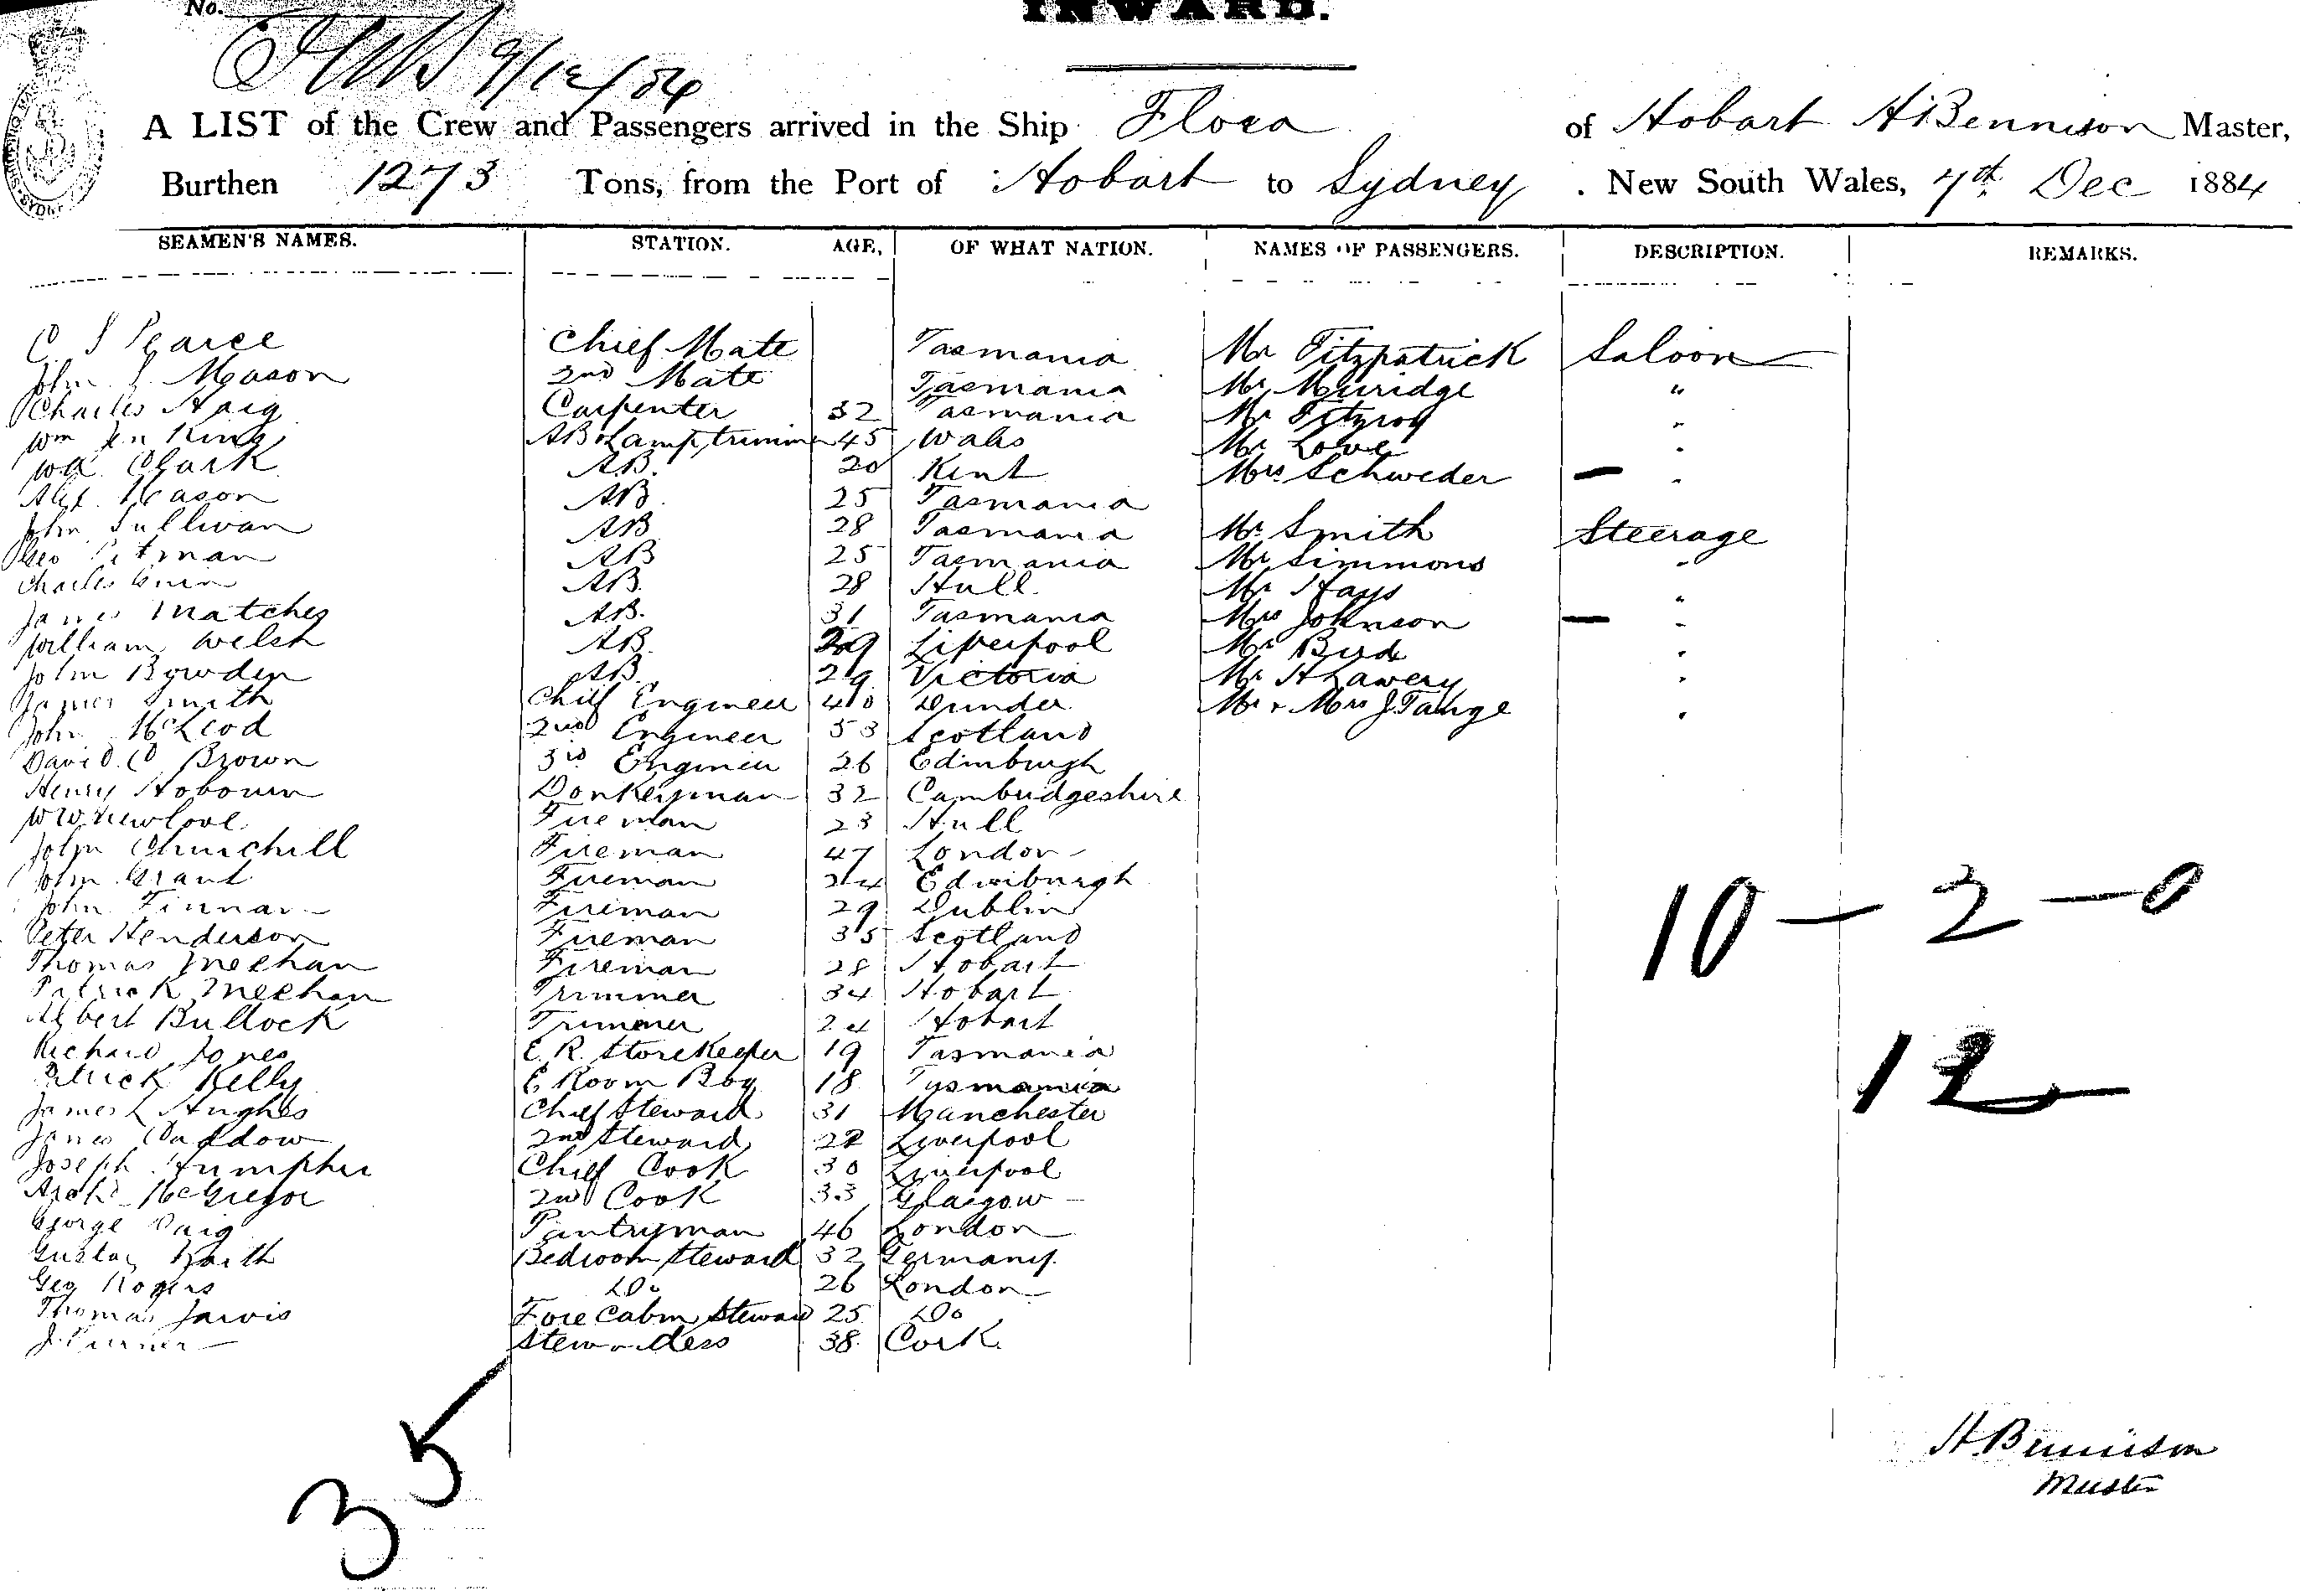 No.
INWARD.
9/12/84
A LIST of the Crew and Passengers arrived in the Ship Flora of Hobart H Bennison Master,
Burthen 1273 Tons, from the Port of Hobart to Sydney . New South Wales, 7th Dec 1884
SEAMEN'S NAMES. STATION. AGE, OF WHAT NATION. NAMES OF PASSENGERS. DESCRIPTION. REMARKS.
C J Pearce Chief Mate Tasmania Mr Fitzpatrick Saloon
John Mason 2nd Mate Tasmania Mr Murridge "
Charles Haig Carpenter 32 Tasmania Mr Fitzroy "
Wm Jn King AB & Lamptrimmer 45 Wales Mr Lowe "
Clark AB. 20 Kent Mrs Schweder — "
Alex. Mason AB. 25 Tasmania
John Sullivan AB 28 Tasmania Mr Smith Steerage
Geo Pitman AB 25 Tasmania Mr Simmons "
Charles AB. 28 Hull. Mr Hays "
James Matches AB. 31 Tasmania Mrs Johnson — "
William Welsh AB. 29 Liverpool Mr Bird "
John Bowden AB. 29 Victoria Mr "
James Smith Chief Engineer 40 Dundee Mr & Mrs J. Tange "
John McLeod 2nd Engineer 53 Scotland
David. C Brown 3rd Engineer 26 Edinburgh
Henry Donkeyman 32 Cambridgeshire
W W Newlove Fireman 23 Hull
John Churchill Fireman 47 London
John Grant Fireman 24 Edinburgh
John Finnan Fireman 29 Dublin
Peter Henderson Fireman 35 Scotland
Thomas Meehan Fireman 28 Hobart
Patrick Meehan Trimmer 34 Hobart
Albert Bullock Trimmer 24 Hobart
Richard Jones E. R. Storekeeper 19 Tasmania
Patrick Kelly E Room Boy 18 Tasmania
James L Hughes Chief Steward 31 Manchester
James 2nd Steward Liverpool
Joseph Humphri Chief Cook 30 Liverpool
Archd McGregor 2nd Cook 33 Glasgow
George Pantryman 46 London
Gustav Bedroom Steward 32 Germany.
Geo Rogers Do 26 London
Thomas Jarvis Fore Cabin Steward 25 Do
J. Turner Stewardess 38. Cork.
10 — 2 — 0
12
35
H Bennison
Master